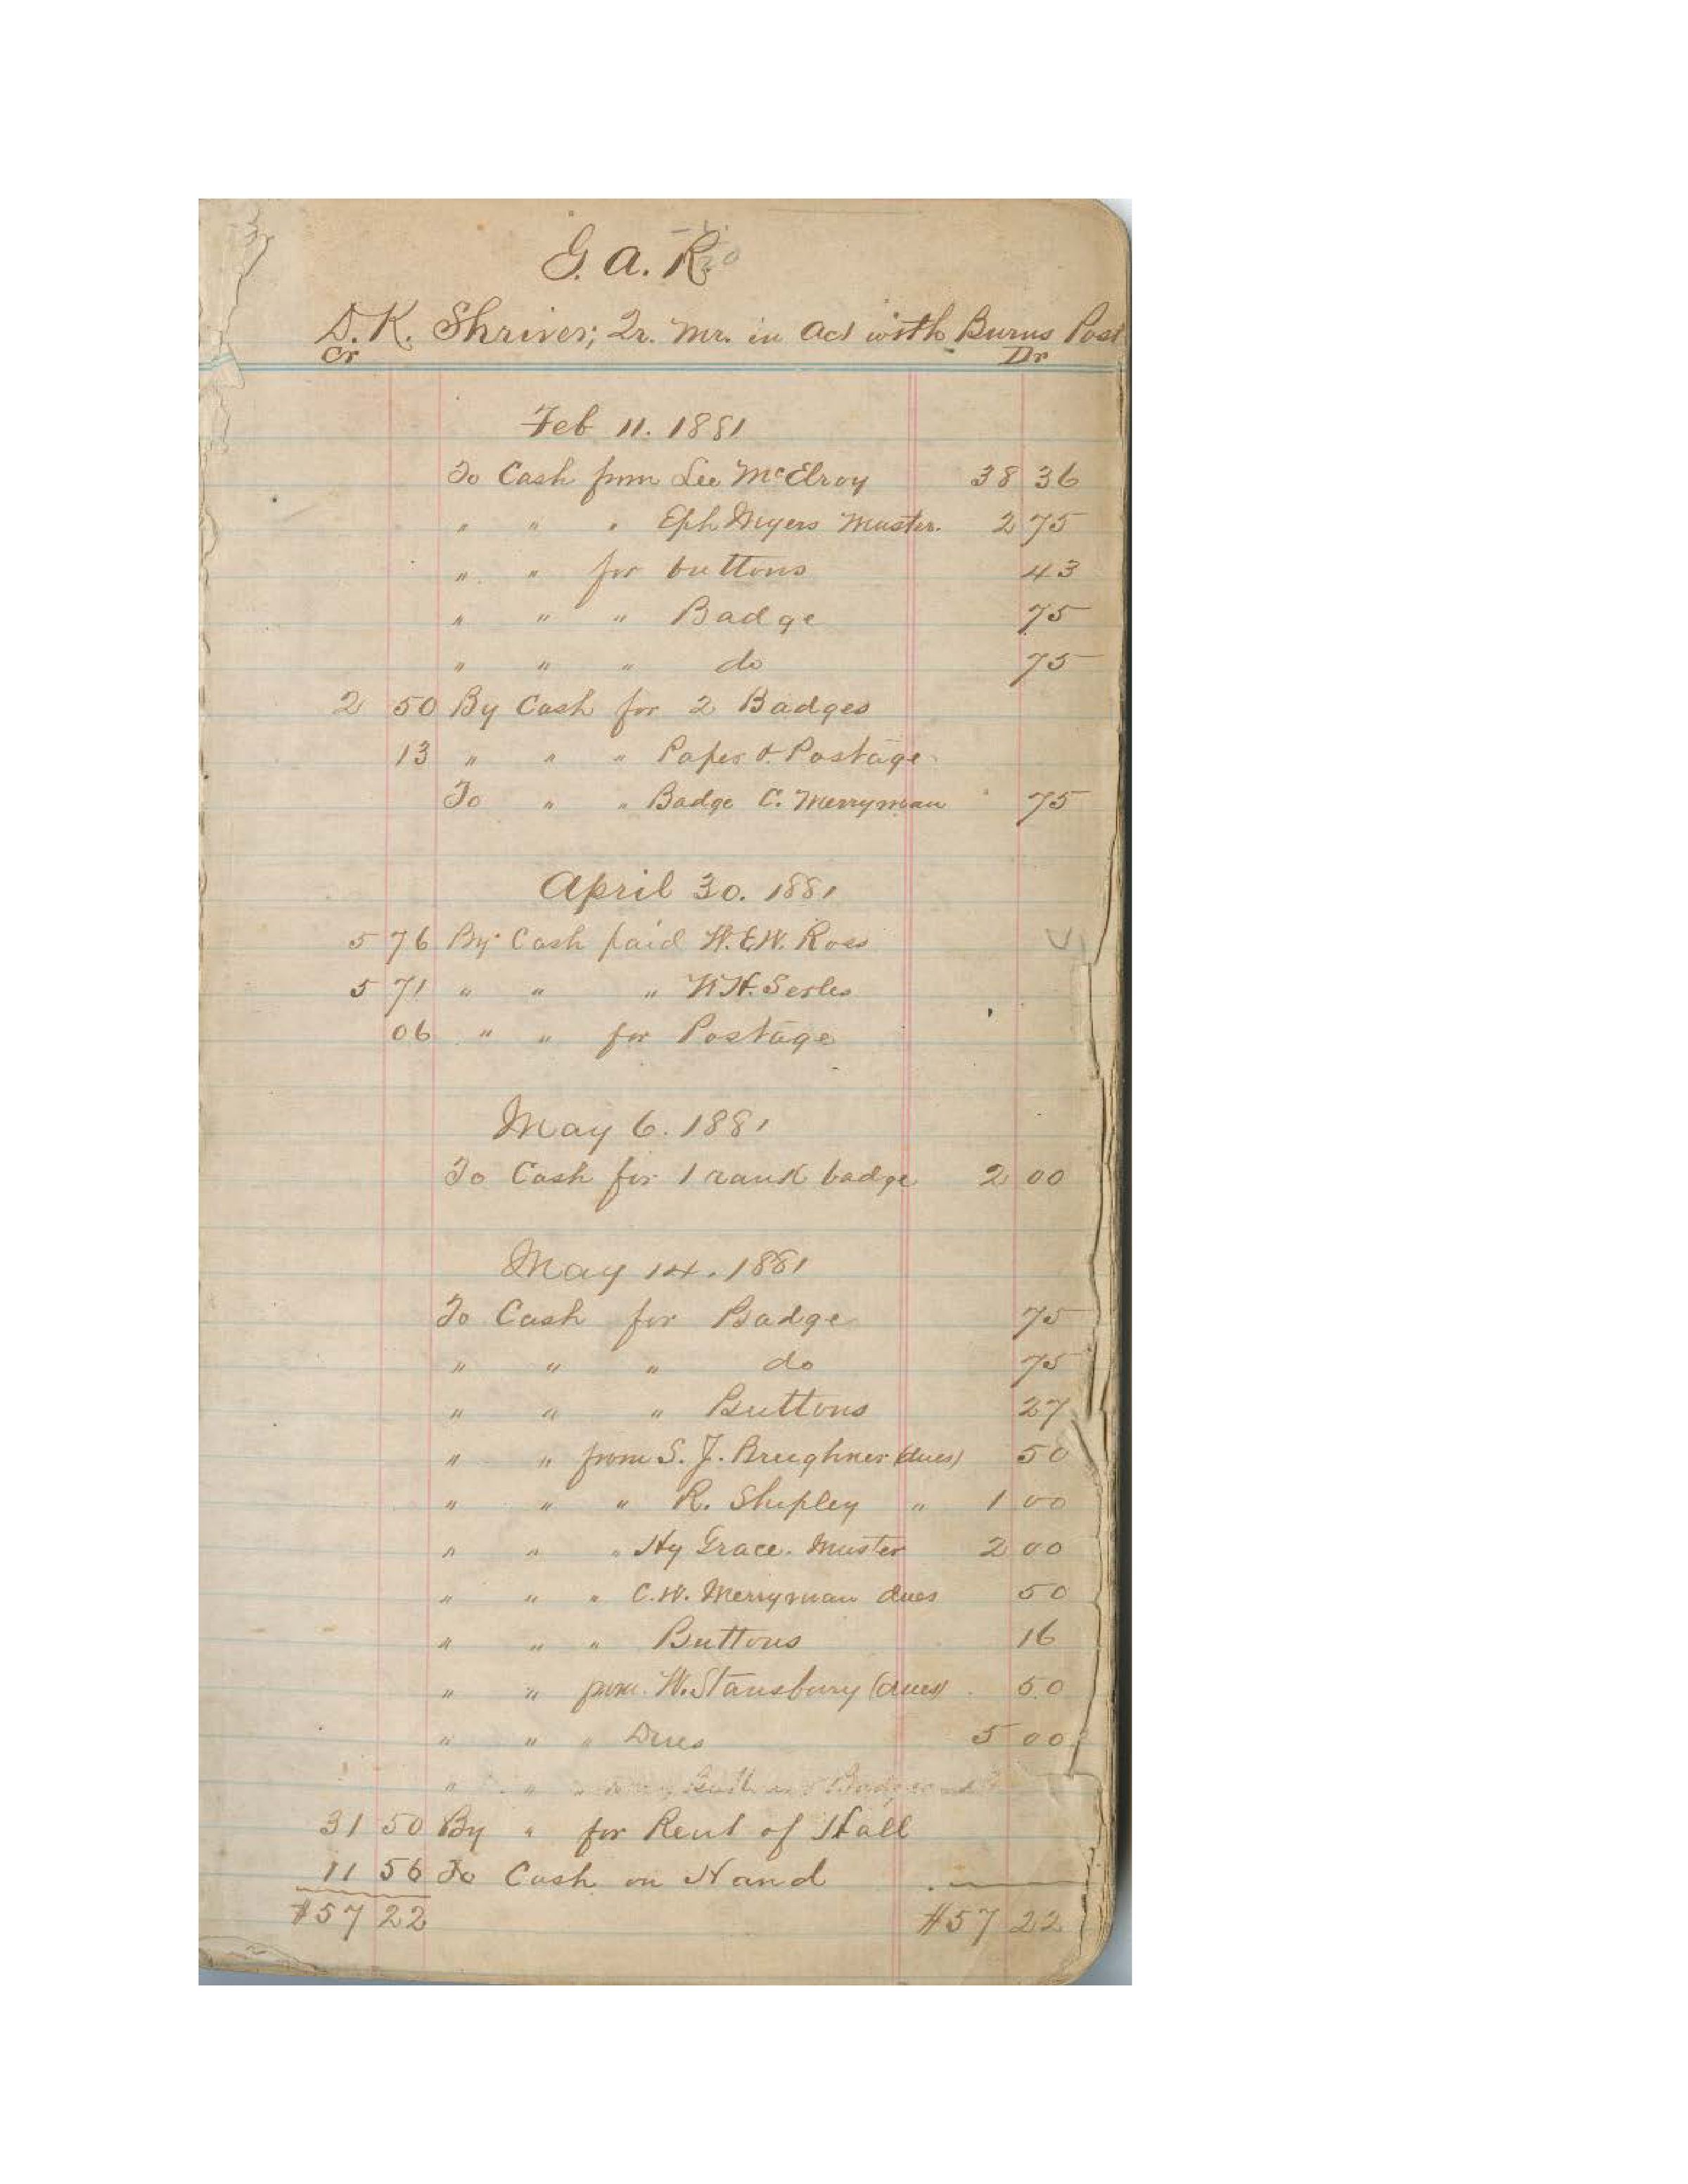 G. a. R.
D. K. Shriver; Qr. Mr. in Act with Burns Post
Cr Dr
Feb 11. 1881
To Cash from Lee McElroy 38 36
" " " Eph Myers Muster. 2 75
" " for buttons 43
" " " Badge 75
" " " do 75
2 50 By Cash for 2 Badges
13 " " " Paper & Postage
To " " Badge C. Merryman 75
April 30. 1881
5 76 By Cash paid W. E. W. Ross
5 71 " " " W H.
06 " " for Postage
May 6. 1881
To Cash for 1 rank badge 2 00
May 14. 1881
To Cash for Badge 75
" " " do 75
" " " Buttons 27
" " from S. J. (dues) 50
" " " R. Shipley " 1 00
" " " Hy Grace. Muster 2 00
" " " C. W. Merryman dues 50
" " " Buttons 16
" " from W. Stansbury (dues) 50
" " " Dues 5 00
" " "
31 50 By " for Rent of Hall
11 56 To Cash on Hand
$57 22 $57 22